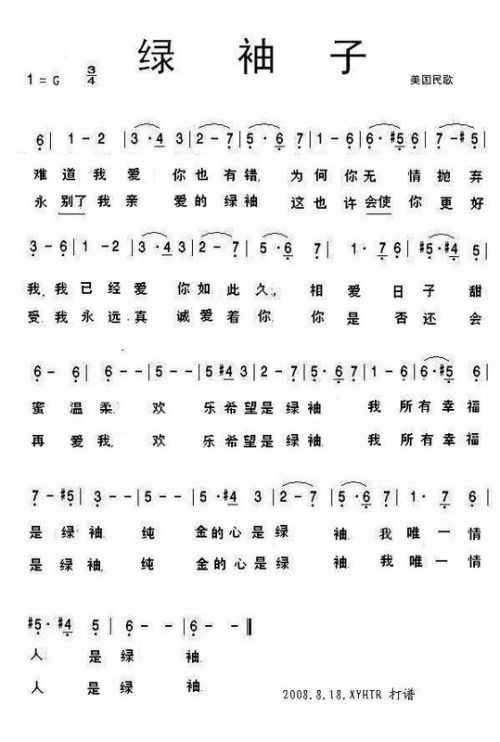 绿 袖 子
1=G 3/4 美国民歌
6| 1-2 |3·4 3|2-7|5·6 7|1-6|6·#5 6|7-#5|
难道我爱 你也有错, 为何你无 情抛弃
永别了我亲 爱的绿袖 这也许会使你更好
3-6|1-2 |3·4 3|2-7|5·6 7| 1·7 6|#5·#4 5|
我,我已经爱 你如此久, 相爱日子甜
受.我永远真 诚爱着你. 你是否还会
6-6| 6--|5--|5#4 3|2-7|5·6 7|1-6| 6·#5 6|
蜜温柔. 欢 乐希望是绿袖 我所有幸福
再爱我. 欢 乐希望是绿袖 我所有幸福
7-#5|3--|5--|5·#4 3|2-7|5·6 7|1·7 6|
是绿袖, 纯 金的心是绿 袖.我唯一情
是绿袖, 纯 金的心是绿 袖.我唯一情
#5·#4 5| 6--|6-‖
人 是绿 袖.
人 是绿 袖.
2008.8.18.XYHTR 打谱